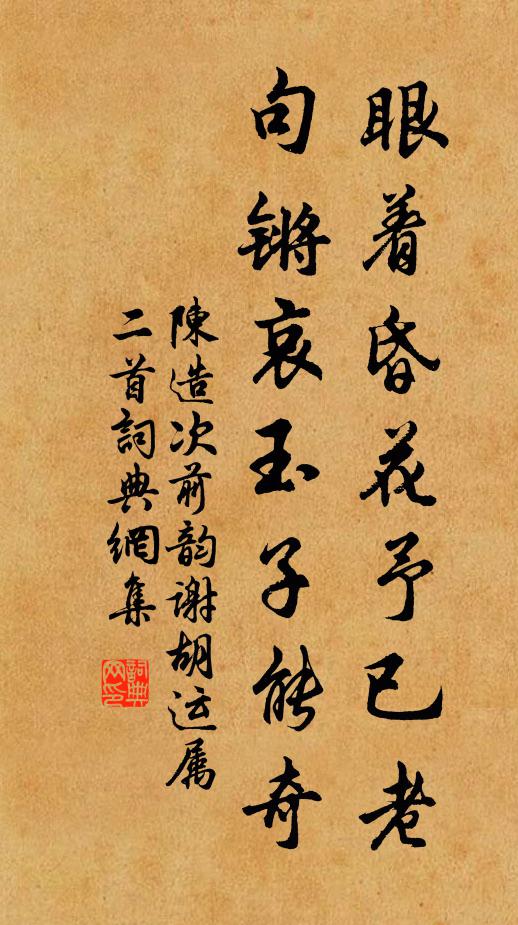 眼着昏花予已老
句锵哀玉子能奇
陳造次前韵谢胡运属
二首詞典網集
詞典
网印